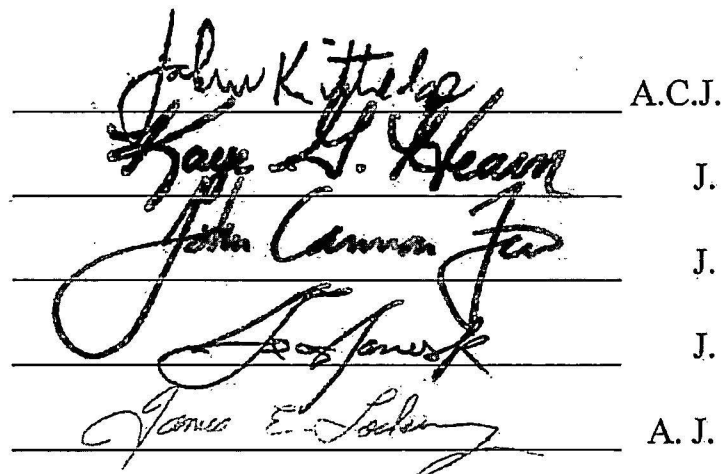 John Kittredge A.C.J.
Kaye G. Hearn J.
John Cannon Few J.
J.
James E. Lockemy A. J.